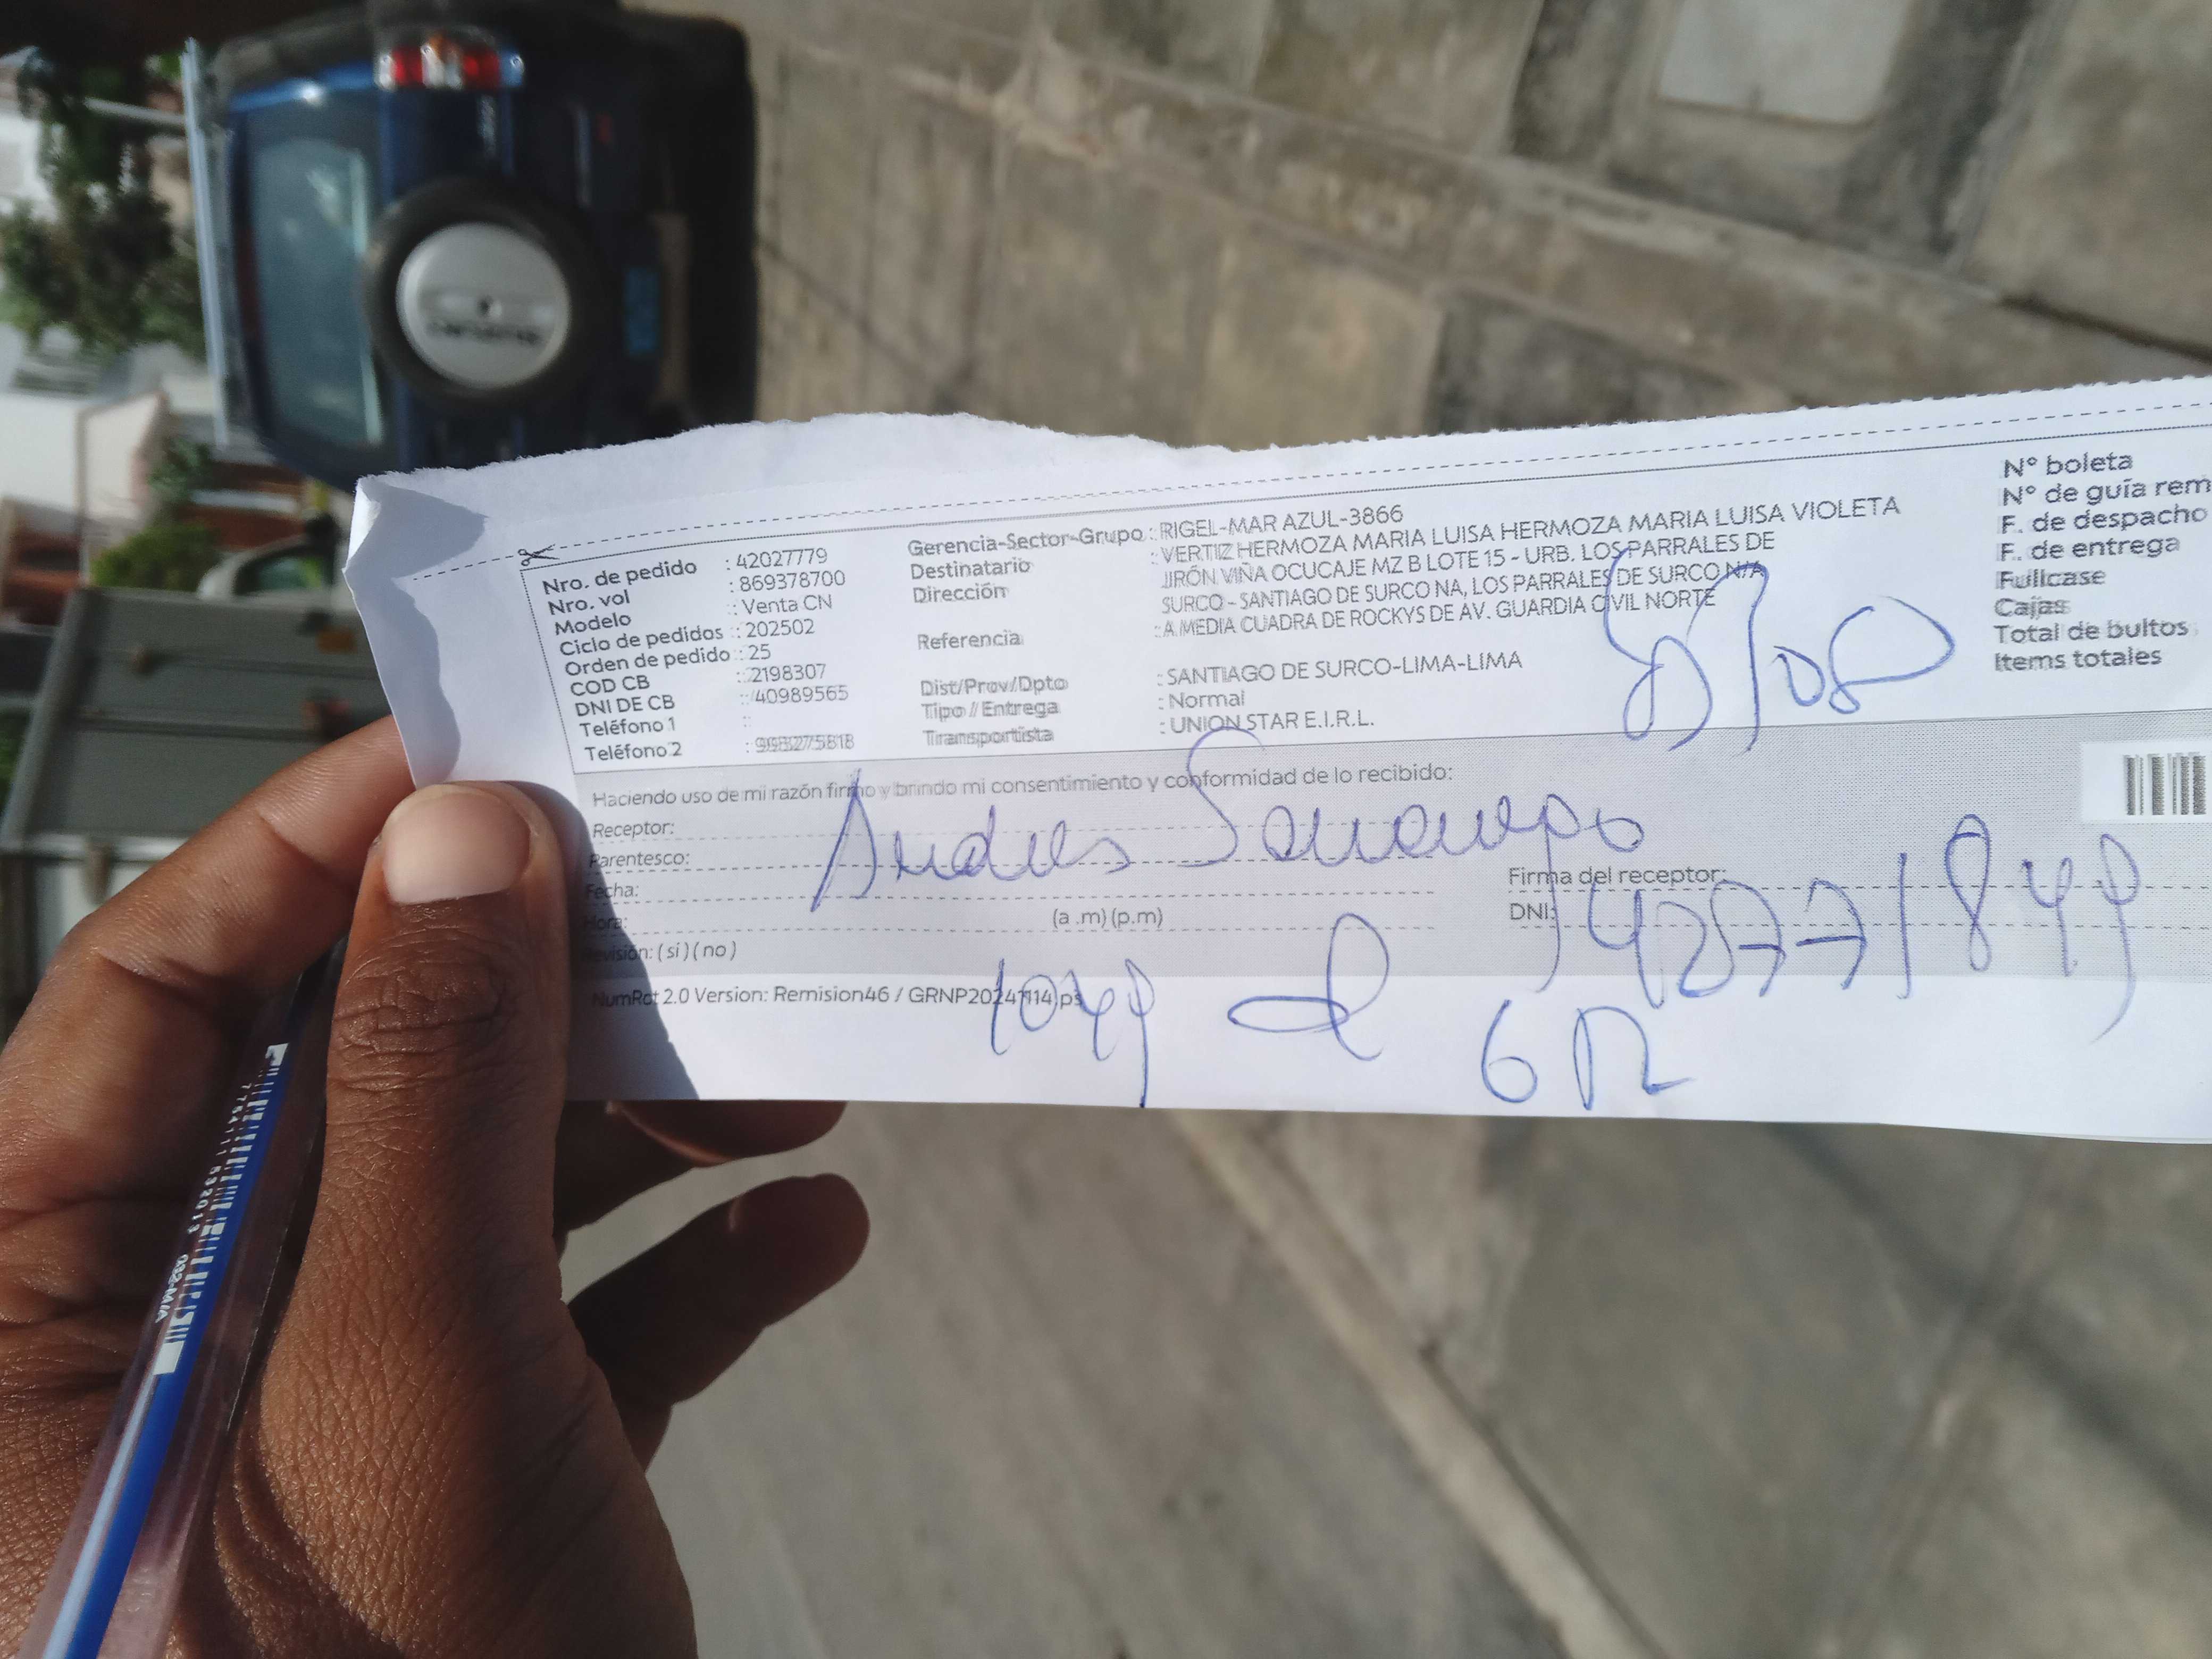 Nro. de pedido : 42027779
Nro. vol : 869378700
Modelo : Venta CN
Ciclo de pedidos : 202502
Orden de pedido : 25
COD CB : 2198307
DNI DE CB : 40989565
Teléfono 1 :
Teléfono 2 : 993275818
Gerencia-Sector-Grupo : RIGEL-MAR AZUL-3866
Destinatario : VERTIZ HERMOZA MARIA LUISA HERMOZA MARIA LUISA VIOLETA
Dirección JIRÓN VIÑA OCUCAJE MZ B LOTE 15 - URB. LOS PARRALES DE
SURCO - SANTIAGO DE SURCO NA, LOS PARRALES DE SURCO N/A
Referencia : A MEDIA CUADRA DE ROCKYS DE AV. GUARDIA CIVIL NORTE
Dist/Prov/Dpto : SANTIAGO DE SURCO-LIMA-LIMA
Tipo / Entrega : Normal
Transportista : UNION STAR E.I.R.L.
Nº boleta
Nº de guía rem
F. de despacho
F. de entrega
Fullcase
Cajas
Total de bultos
Items totales
Haciendo uso de mi razón firmo y brindo mi consentimiento y conformidad de lo recibido:
Receptor:
Andres
Parentesco:
Fecha:
Hora: (a .m) (p.m)
Revisión: ( si ) ( no )
Firma del receptor:
DNI:
NumRct 2.0 Version: Remision46 / GRNP20241114.ps